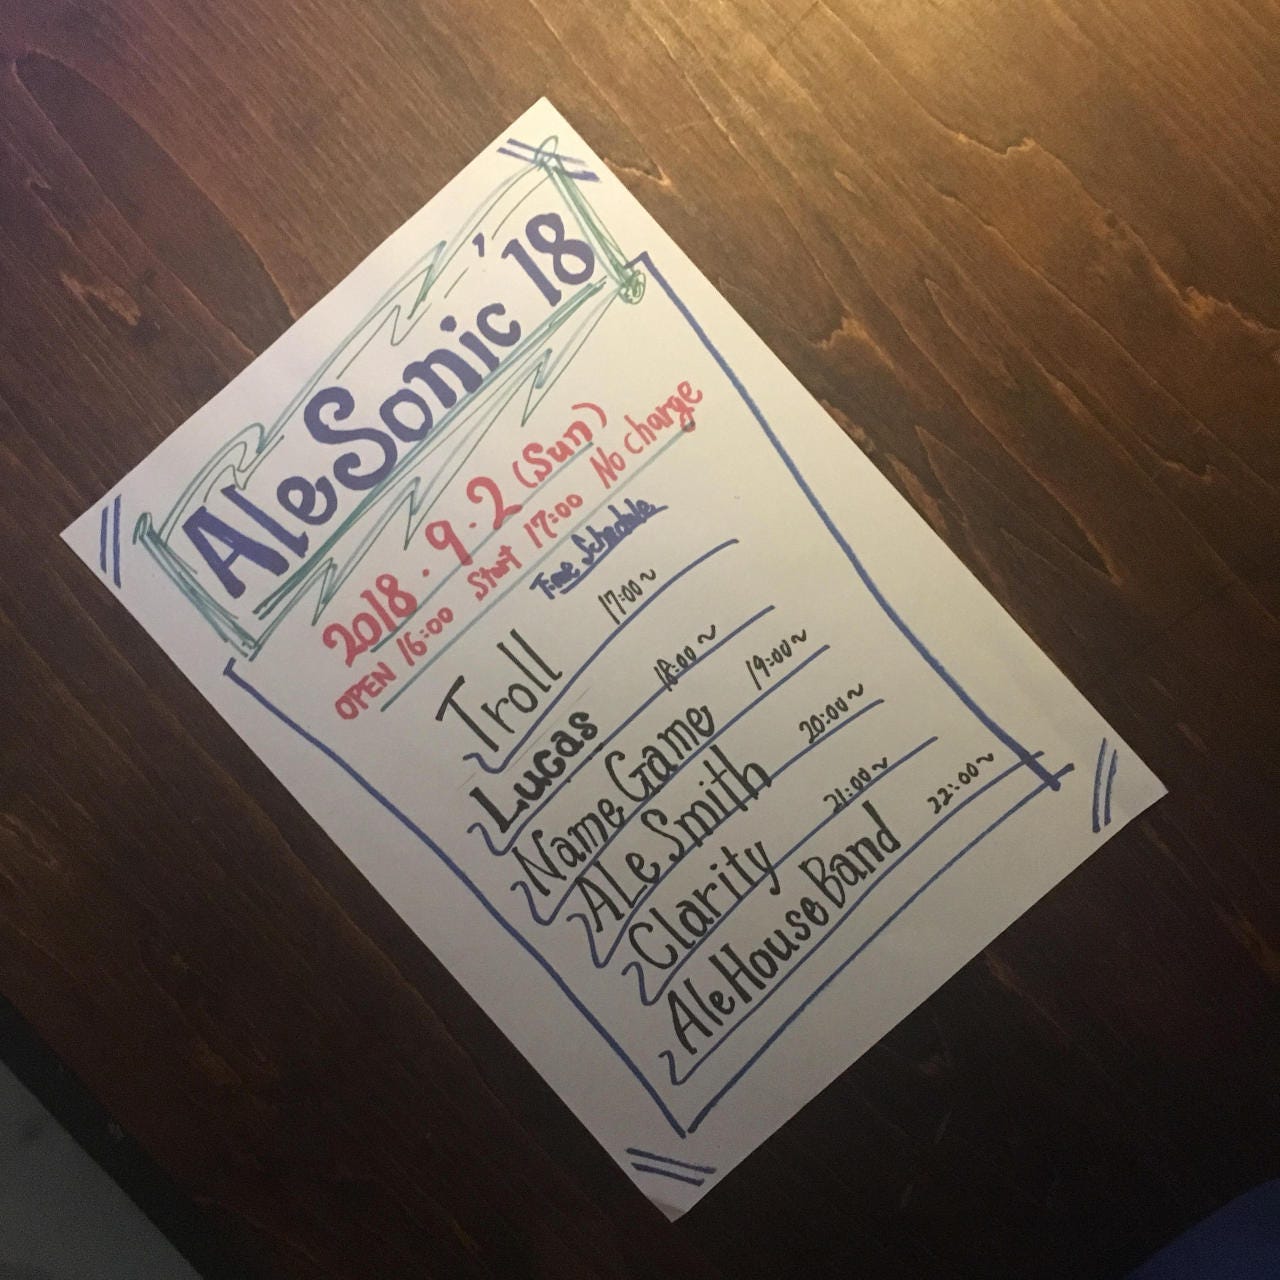 AleSonic '18
2018.9.2 (Sun)
OPEN 16:00 Start 17:00 No charge
Time Schedule
Troll 17:00~
Lucas 18:00~
Name Game 19:00~
ALe Smith 20:00~
Clarity 21:00~
AleHouseBand 22:00~